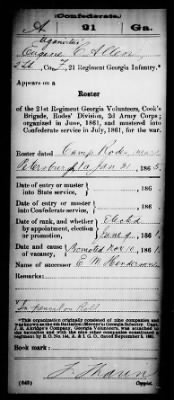 (Confederate.)
A 21 Ga.
Eugene C. Allen
2 Lt., Co. F, 21 Regiment Georgia Infantry.*
Appears on a
Roster
of the 21st Regiment Georgia Volunteers, Cook's
Brigade, Rodes' Division, 2d Army Corps;
organized in June, 1861, and mustered into
Confederate service in July, 1861, for the war.
Roster dated Camp Rodes near
Petersburg Va Jan 31, 1865.
Date of entry or muster
into State service, , 186
Date of entry or muster
into Confederate service, , 186
Date of rank, and whether
by appointment, election
or promotion, Elected
June 9, 1861
Date and cause
of vacancy, Promoted Nov 10, 1861
Name of successor E. M. Henderson
Remarks:
In pencil on Roll
Book mark:
(642) Copyist.